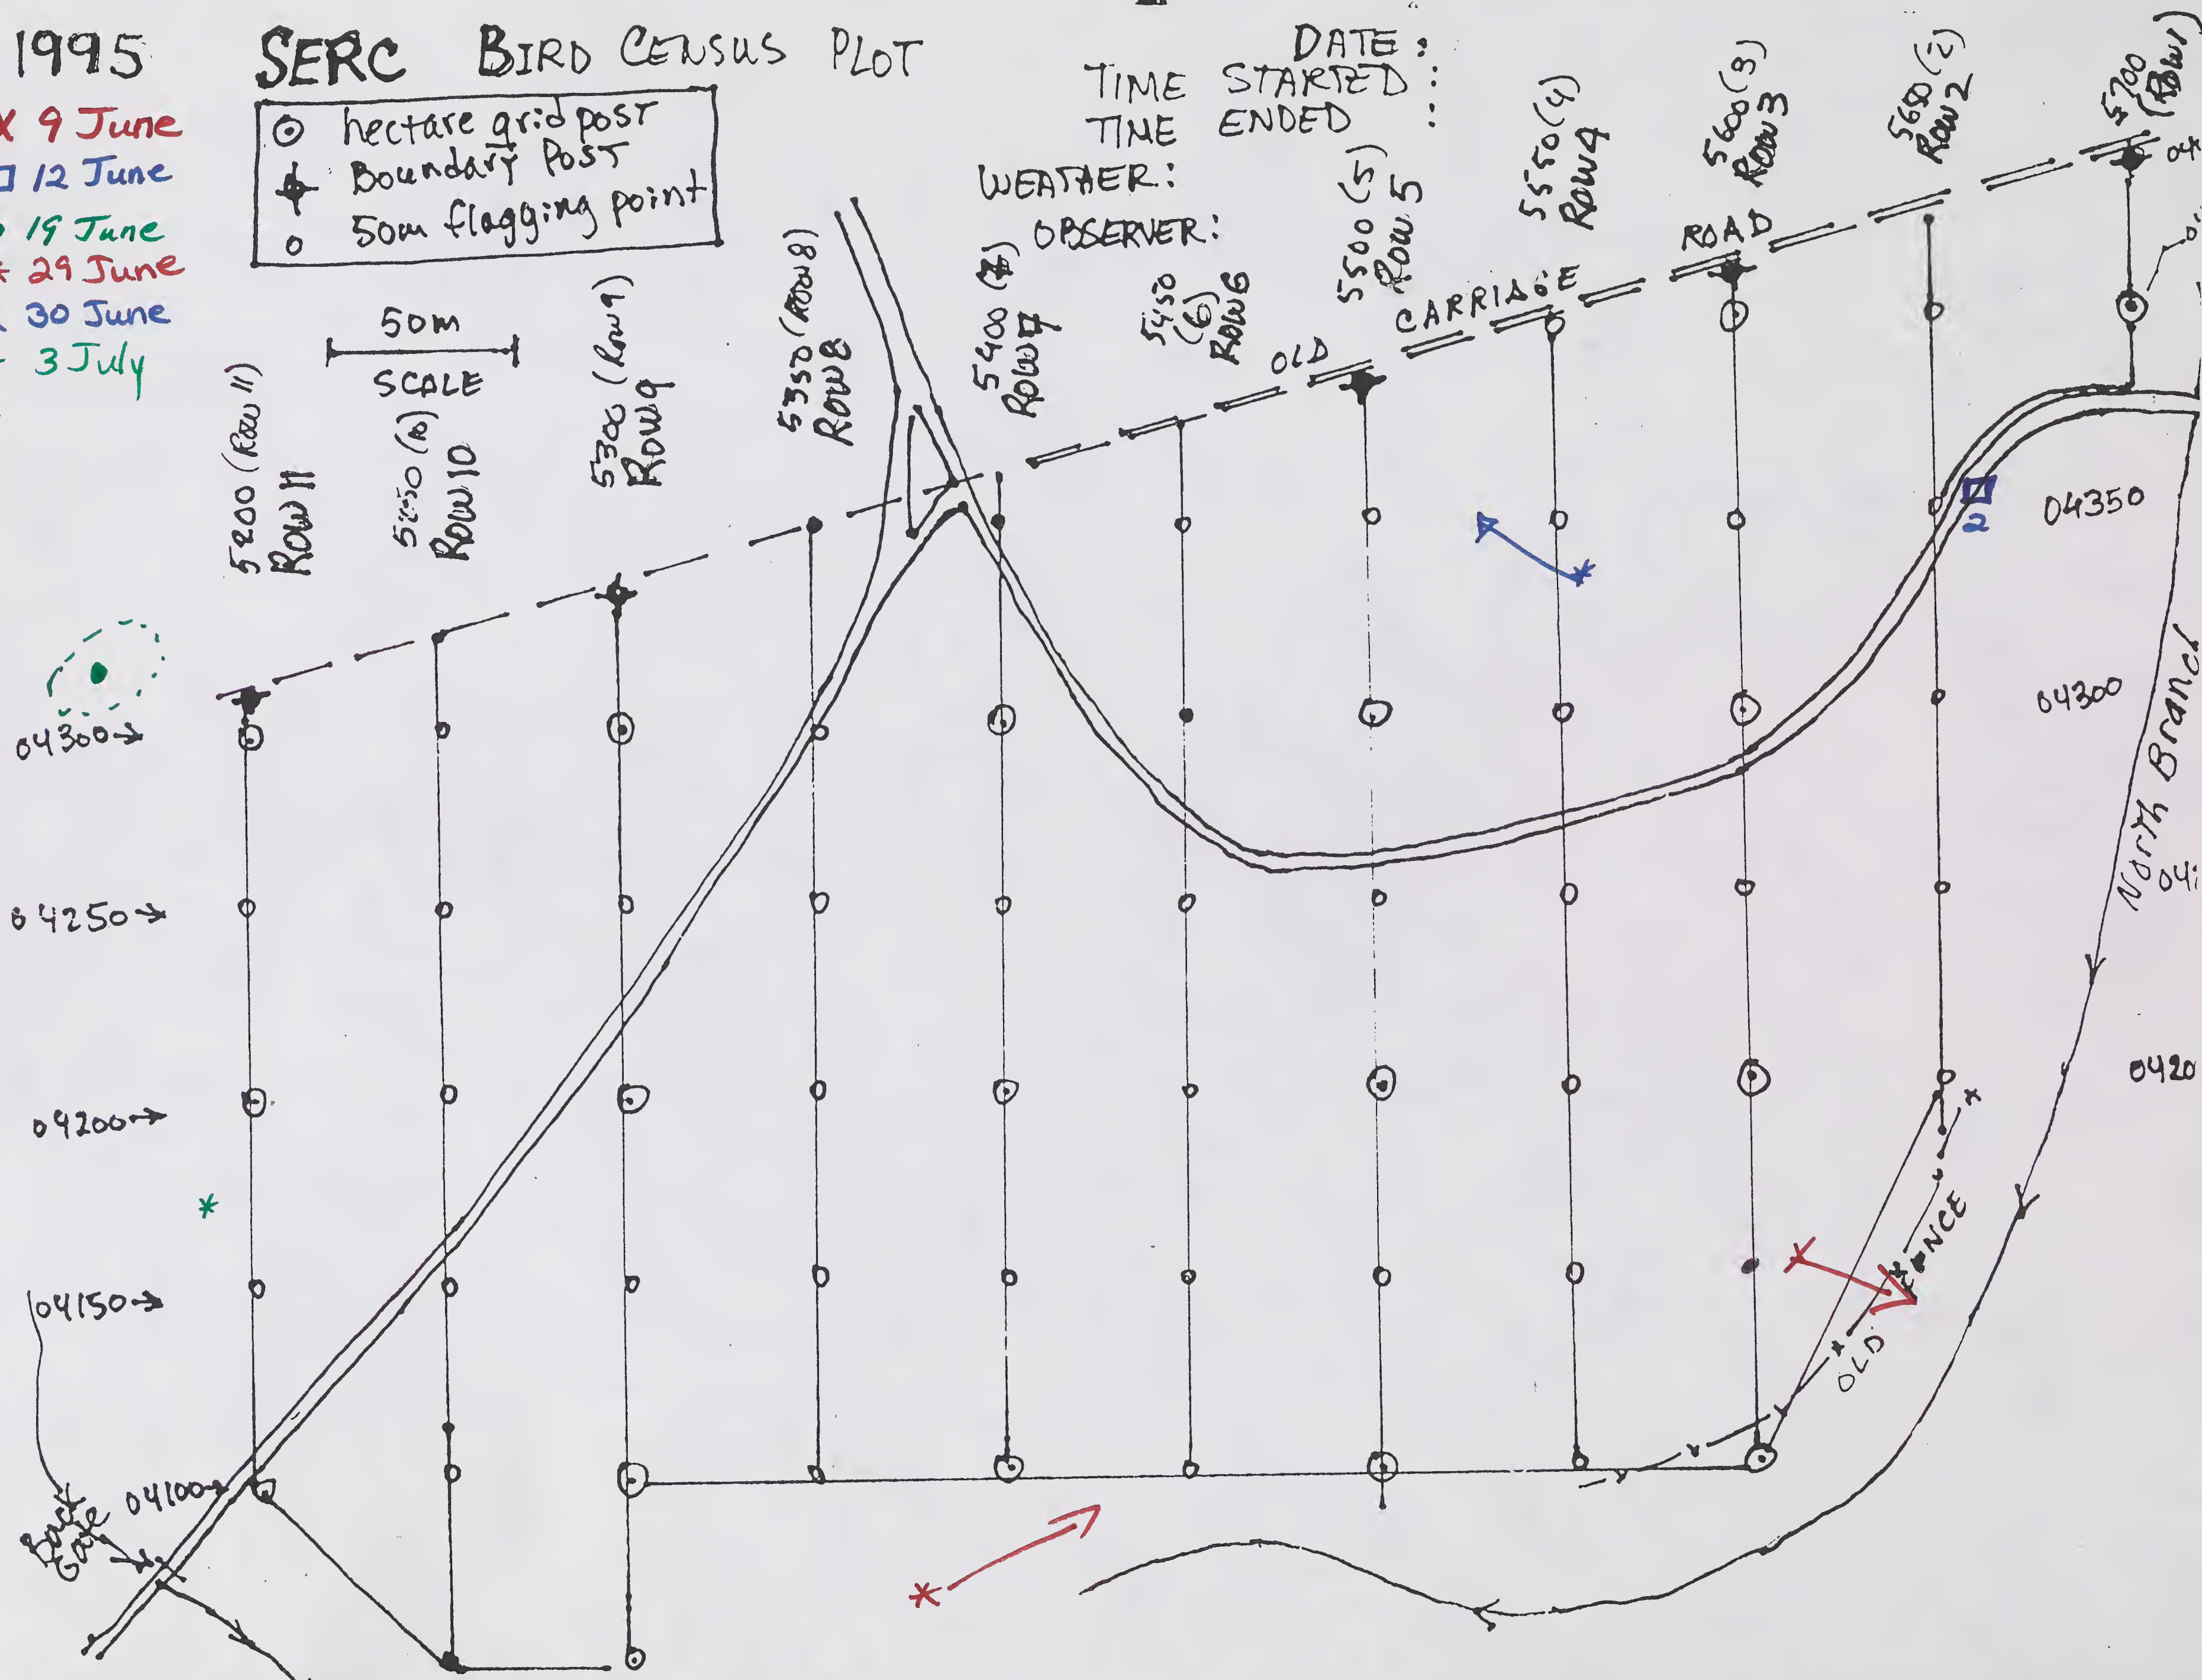 1995 SERC BIRD CENSUS PLOT
DATE:
TIME STARTED :
TIME ENDED :
WEATHER:
OBSERVER:
X 9 June
12 June
19 June
* 29 June
30 June
3 July
hectare grid post
Boundary Post
50m flagging point
50m
SCALE
5200 (Row 11)
Row 11
5250 (10)
Row 10
5300 (Row 9)
Row 9
5350 (Row 8)
Row 8
5400 (7)
Row 7
5450
(6)
Row 6
5500 (5)
Row 5
5550 (4)
Row 4
5600 (3)
Row 3
5650 (2)
Row 2
5700
(Row 1)
OLD CARRIAGE ROAD
2
04350
04300
North Branch
0420
04300→
04250→
04200→
04150→
04100→
Back
Gate
OLD FENCE